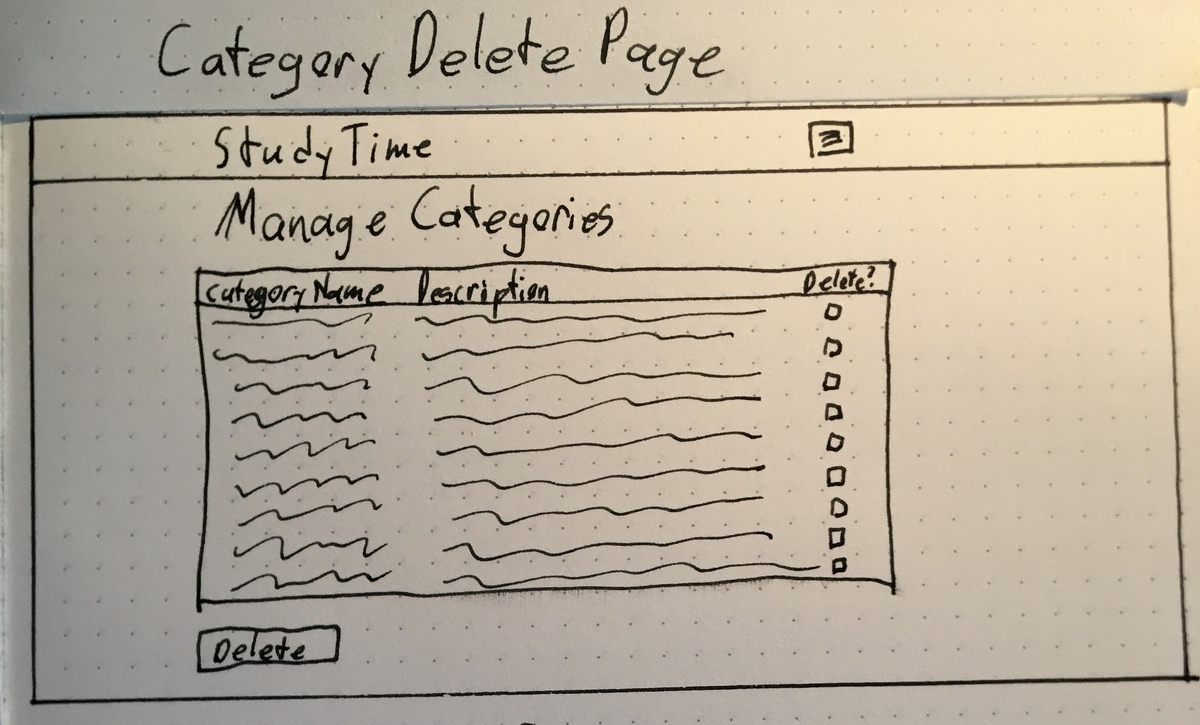 Category Delete Page
StudyTime
Manage Categories
Category Name Description Delete?
Delete